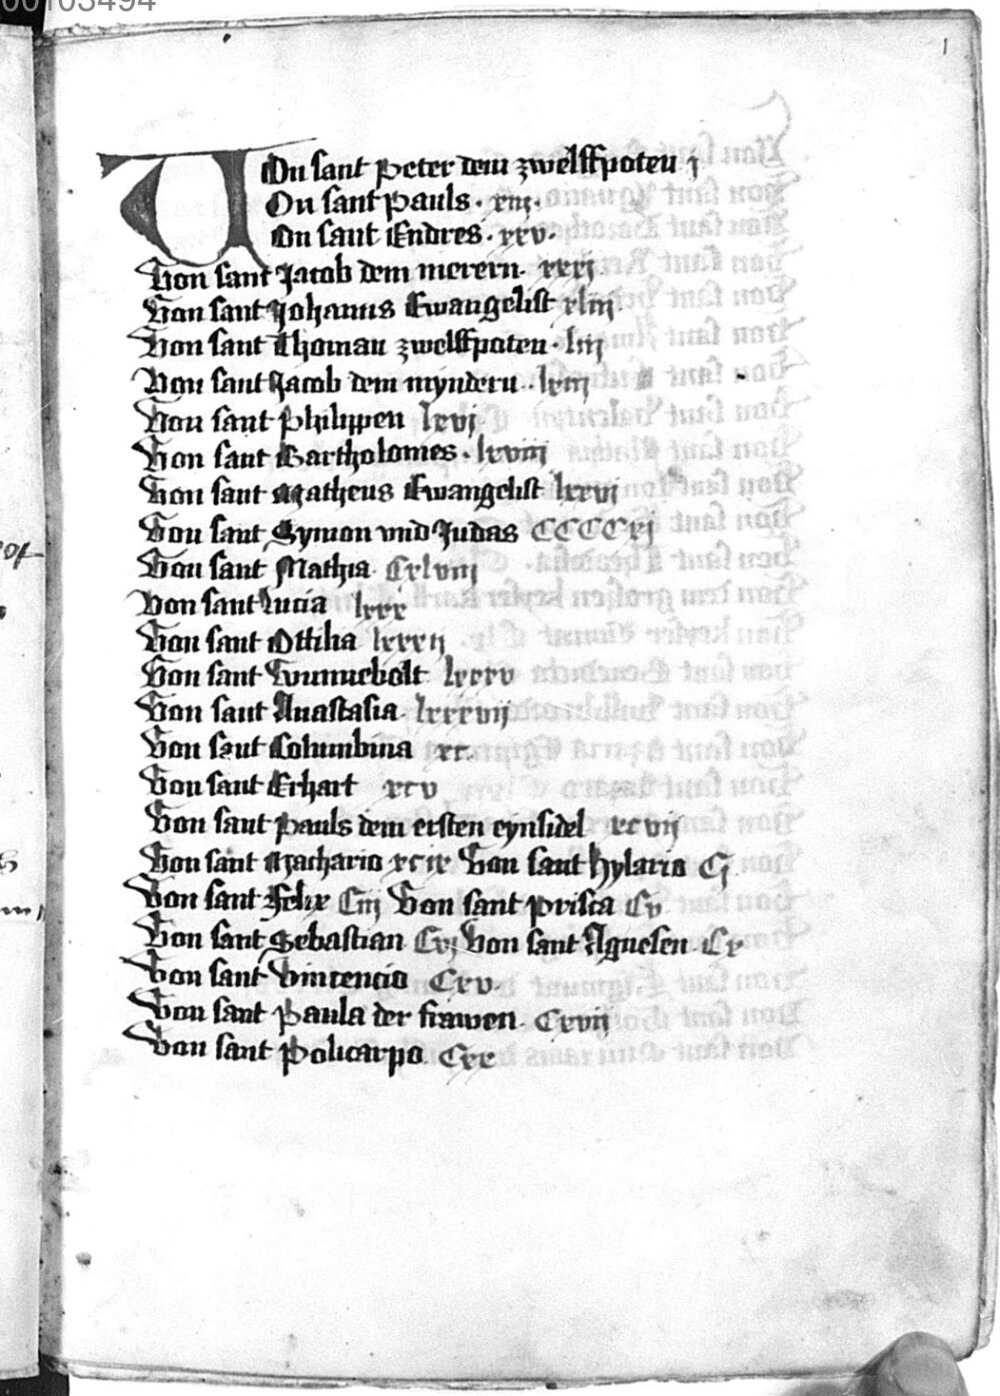 00103494
1
VOn sant Peter dem zwelffpoten j
On sant Pauls . xiij.
On sant Endres . xxv.
Von sant Jacob dem merern. xxxj
Von sant Johanns Ewangelist xliij.
Von sant Thoman zwelffpoten . liij
Von sant Jacob dem myndern . . lxiij
Von sant Philippen lxvj
Von sant Bartholomes . lxviij
Von sant Matheus Ewangelist lxxvj
Von sant Symon vnd Judas CCCCxj
Von sant Mathia. Cxlviij
Von sant Lucia lxxx
Von sant Ottilia lxxxij
Von sant Wunnebolt lxxxv
Von sant Anastasia. lxxxvij
Von sant Columbina xc.
Von sant Erhart xcv
Von sant Pauls dem ersten eynsidel xcvij
Von sant Machario xcix Von sant hylario Cj
Von sant Felix Ciij Von sant Prisca Cv
Von sant Sebastian Cvj Von sant Agnesen Cx
Von sant Vincencio Cxv.
Von sant Paula der frawen. Cxvij
Von sant Policarpo. Cxx